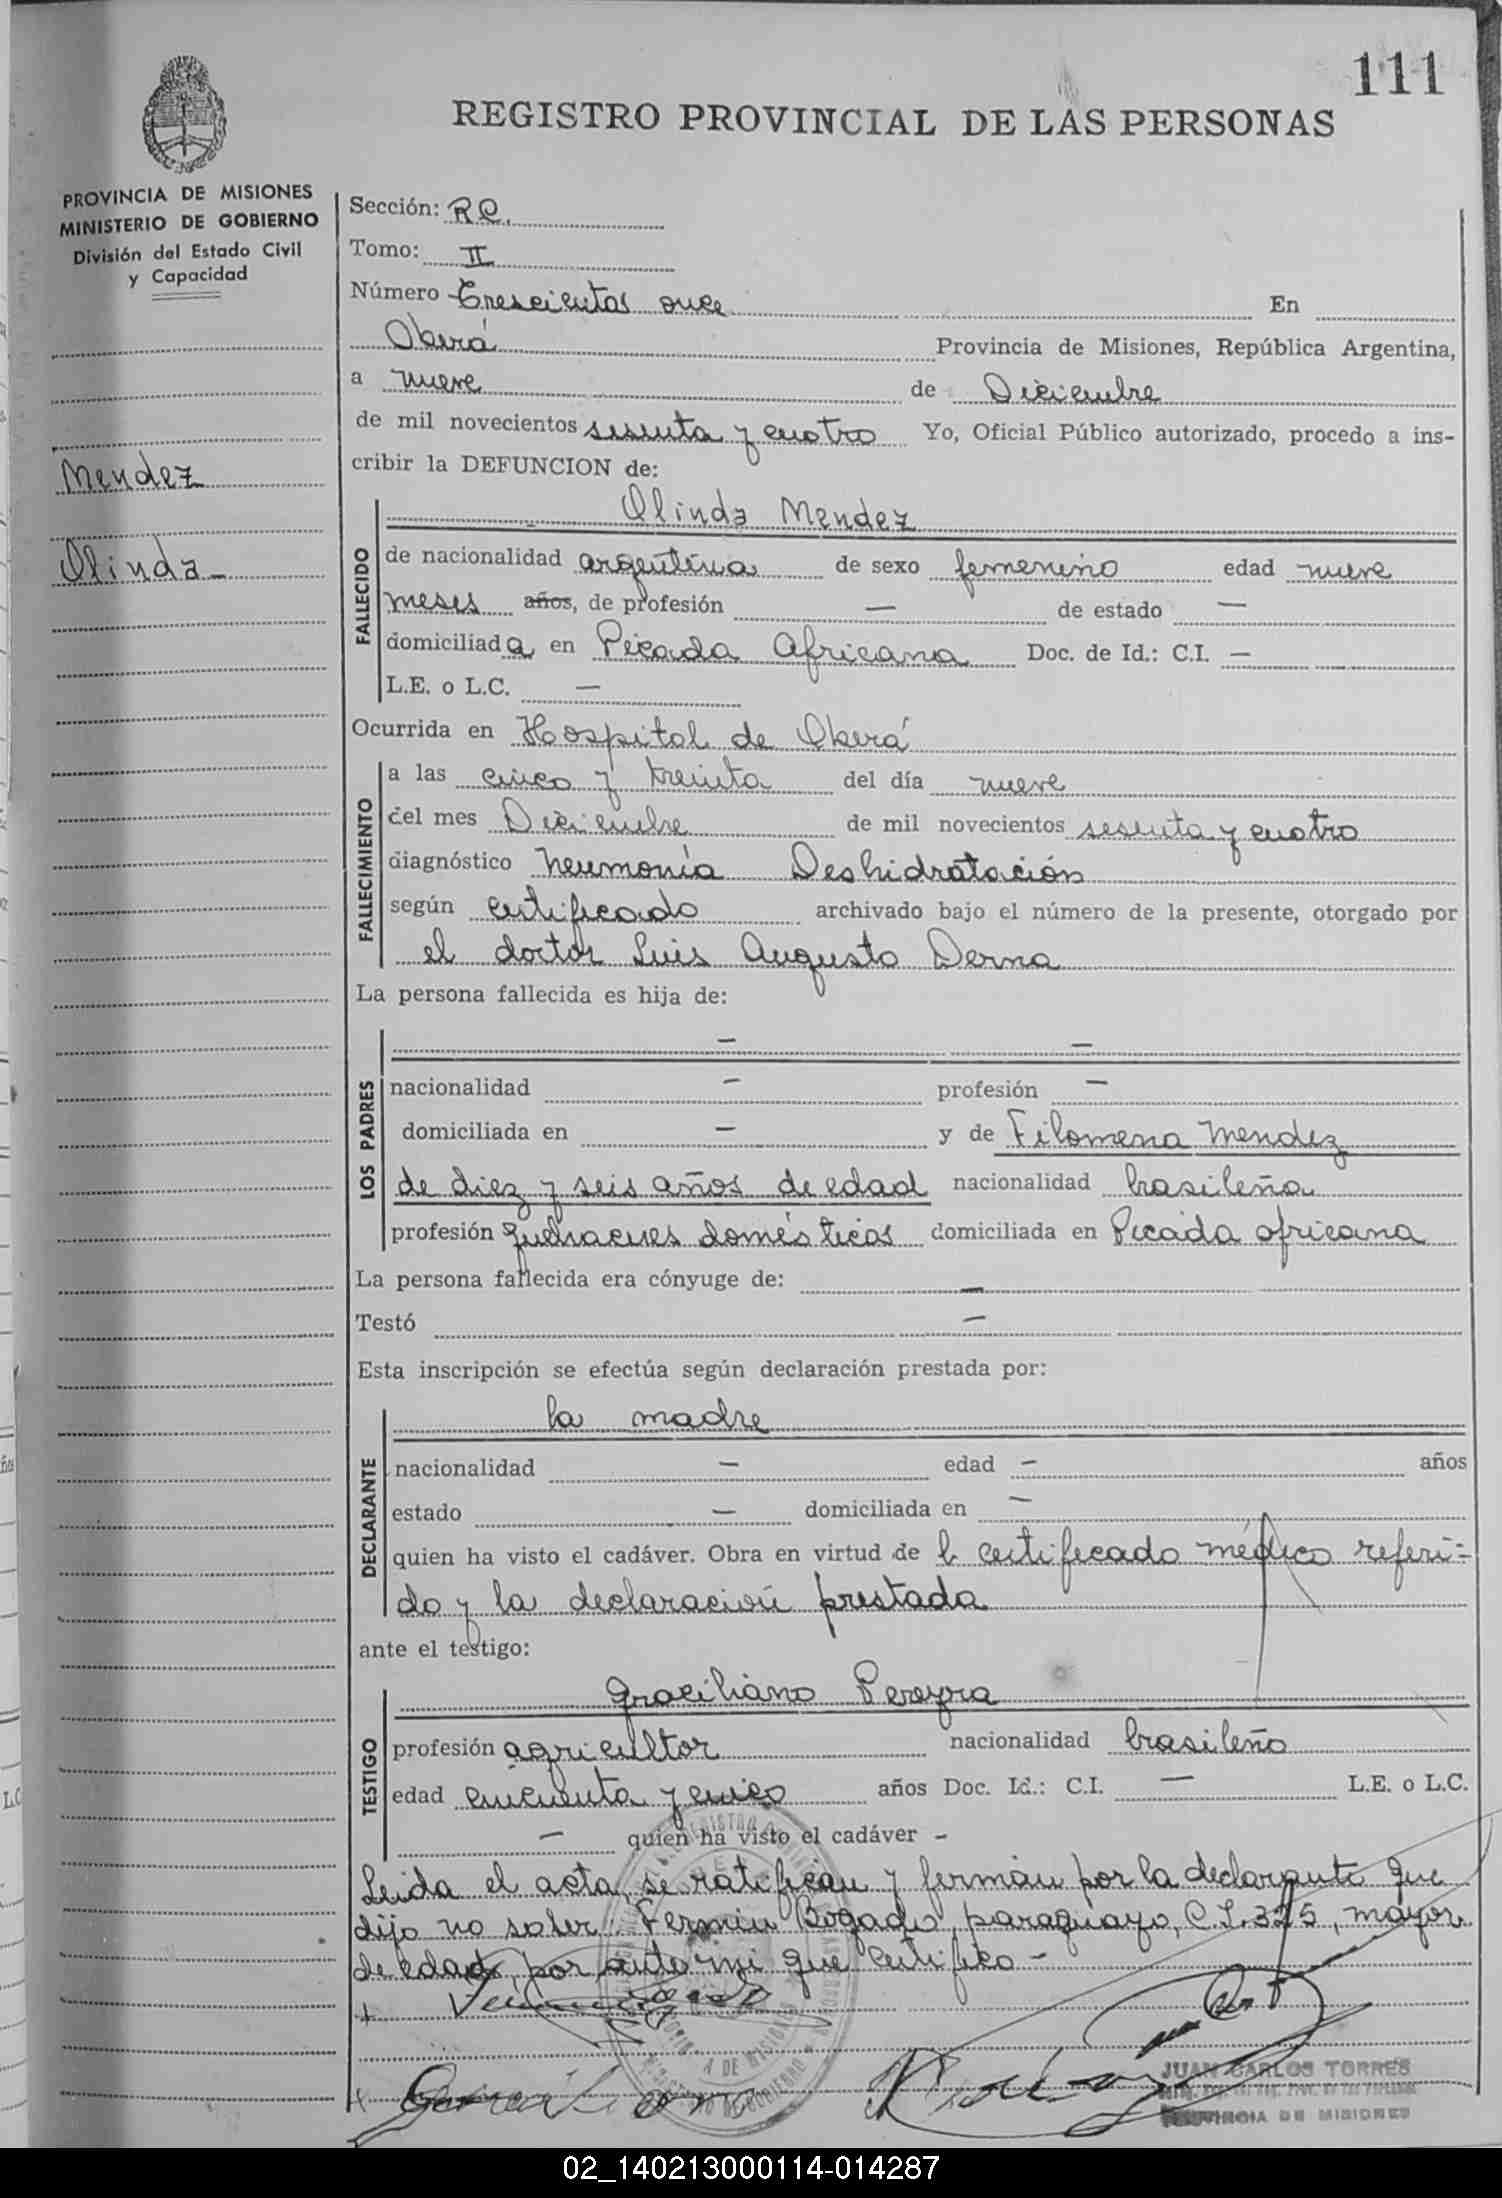 111
REGISTRO PROVINCIAL DE LAS PERSONAS
PROVINCIA DE MISIONES
MINISTERIO DE GOBIERNO
División del Estado Civil
y Capacidad
Mendez
Olinda -
Sección: R.C.
Tomo: II
Número Trescientos once En
Oberá Provincia de Misiones, República Argentina,
a nueve de Diciembre
de mil novecientos sesenta y cuatro Yo, Oficial Público autorizado, procedo a ins-
cribir la DEFUNCION de:
FALLECIDO
Olinda Mendez
de nacionalidad argentina de sexo femenino edad nueve
meses años, de profesión — de estado —
domiciliada en Picada Africana Doc. de Id.: C.I. —
L.E. o L.C. —
Ocurrida en Hospital de Oberá
FALLECIMIENTO
a las cinco y treinta del día nueve
del mes Diciembre de mil novecientos sesenta y cuatro
diagnóstico Neumonía Deshidratación
según certificado archivado bajo el número de la presente, otorgado por
el doctor Luis Augusto Derna
La persona fallecida es hija de:
LOS PADRES
— —
nacionalidad — profesión —
domiciliada en — y de Filomena Mendez
de diez y seis años de edad nacionalidad brasileña
profesión quehaceres domésticos domiciliada en Picada africana
La persona fallecida era cónyuge de: —
Testó —
Esta inscripción se efectúa según declaración prestada por:
DECLARANTE
la madre
nacionalidad — edad — años
estado — domiciliada en —
quien ha visto el cadáver. Obra en virtud de l certificado médico referi-
do y la declaración prestada
ante el testigo:
TESTIGO
Graciliano Pereyra
profesión agricultor nacionalidad brasileño
edad cincuenta y cinco años Doc. Id.: C.I. — L.E. o L.C.
— quien ha visto el cadáver -
Leida el acta, se ratifican y firman por la declarante que
dijo no saber: Fermin Bogado, paraguayo, C.I. 325, mayor
de edad, por ante mi que certifico -
JUAN CARLOS TORRES
PROVINCIA DE MISIONES
02_140213000114-014287